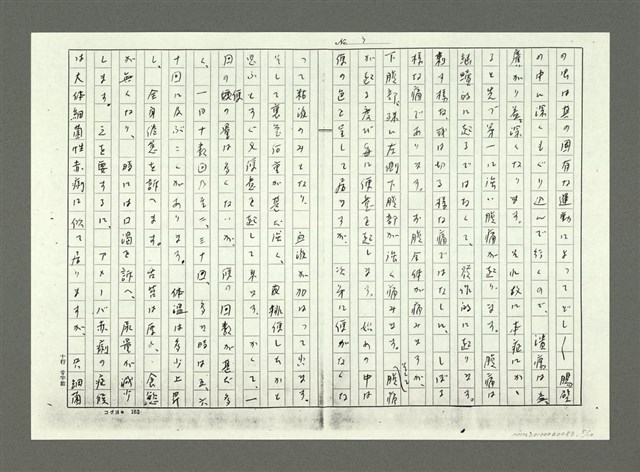 No. 9
の虫は其の固有な運動によってどし〱腸壁
の中に深くもぐり込んで行くので、潰瘍は益々
廣がり益々深くなります。それ故に本症にかゝ
ると先づ第一に強い腹痛が起ります。腹痛は
継續的に起るではなく、發作的に起ります。
刺す様な、或は切る様な、しばる
様な痛であります。お腹全体が痛み
下腹部、殊に左側下腹部が強く痛みます。腹痛
が起る度び毎に便意を起します。始めの中は
便の色を呈して居ますが、次第に便がなくな
って粘液のみとなり、血液が加はって出ます。
そして裏急後重が甚だ強く、排便したかと
思ふとすぐ又便意を起して来ます。かくて一
回の便の量は多くないが、便の回数が甚だ多
く、一日十数回乃至二、三十回、多き時は五六
十回に及ぶことがあります。体温は多少上昇
し、全身倦怠を訴へます。舌苔は厚く、食慾
が無くなり、時には口渇を訴へ、尿量が減少
します。之を要するに、アメーバ赤痢の症候
は大体細菌性赤痢に似て居りますが、只細菌
十行 廿字詰
コクヨ 162